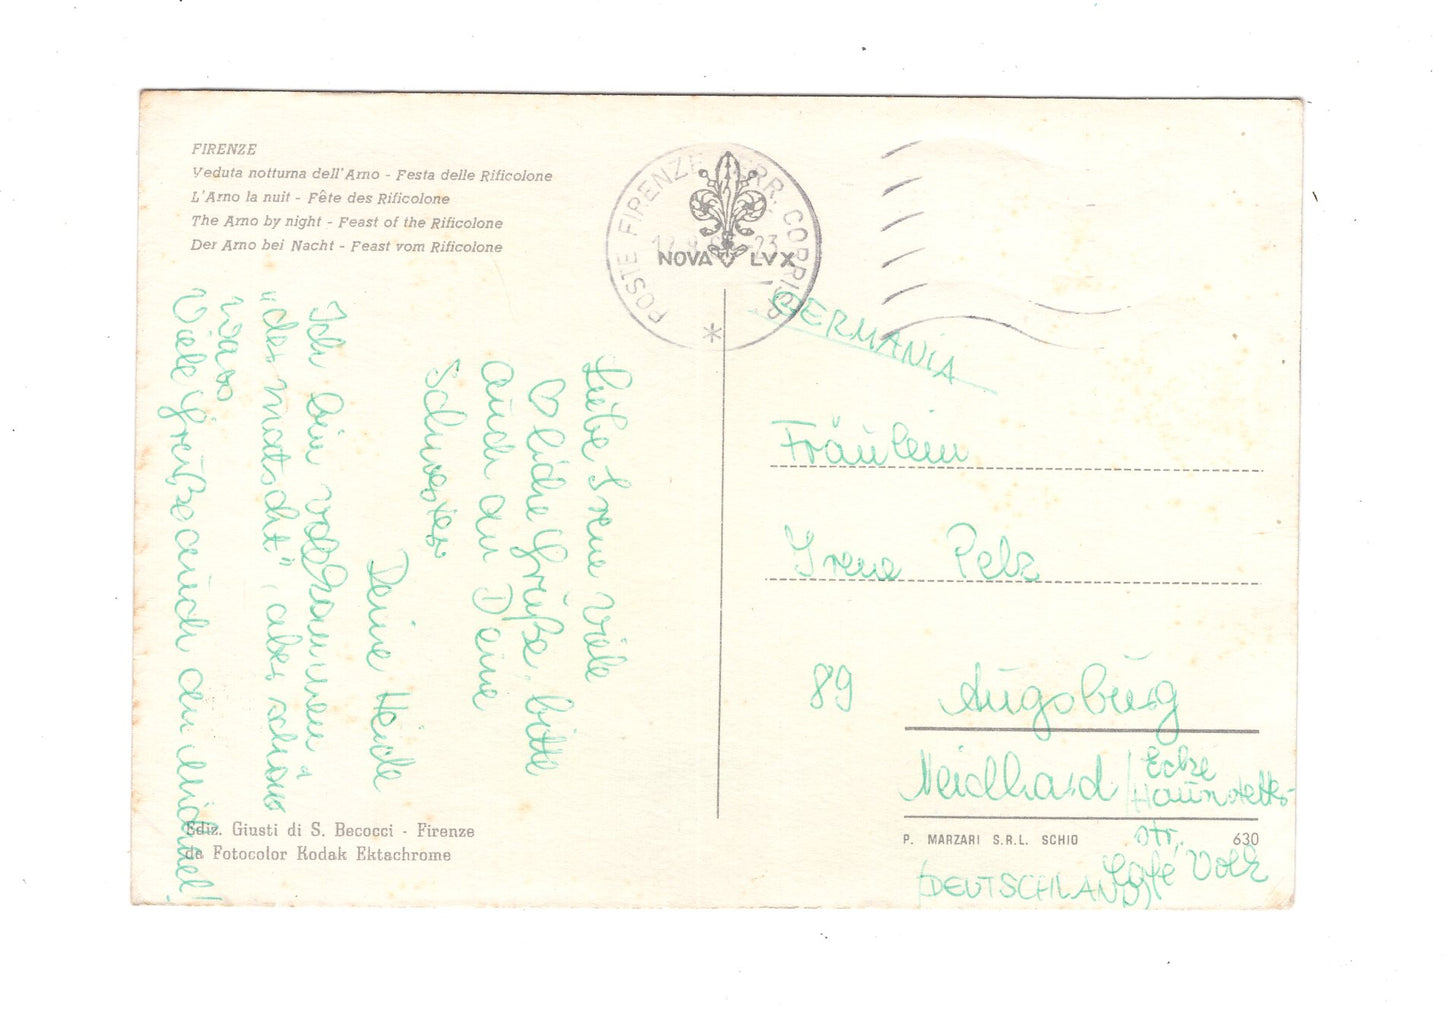 FIRENZE
Veduta notturna dell'Arno - Festa delle Rificolone
L'Arno la nuit - Fête des Rificolone
The Arno by night - Feast of the Rificolone
Der Arno bei Nacht - Feast vom Rificolone
POSTE FIRENZE FERR. CORRISP.
NOVA LVX
GERMANIA
Liebe Irene viele
♡liche Grüße, bitte
auch an Deine
Schwester
Deine Heide
Ich bin vollkommen
"dermatscht", aber schön
war's
Viele Grüße auch an Michael!
Fräulein
Irene Pelz
89 Augsburg
Neidhard / Ecke
Haunstetter-
str.
Café Volk
(DEUTSCHLAND)
Ediz. Giusti di S. Becocci - Firenze
da Fotocolor Kodak Ektachrome
P. MARZARI S.R.L. SCHIO 630